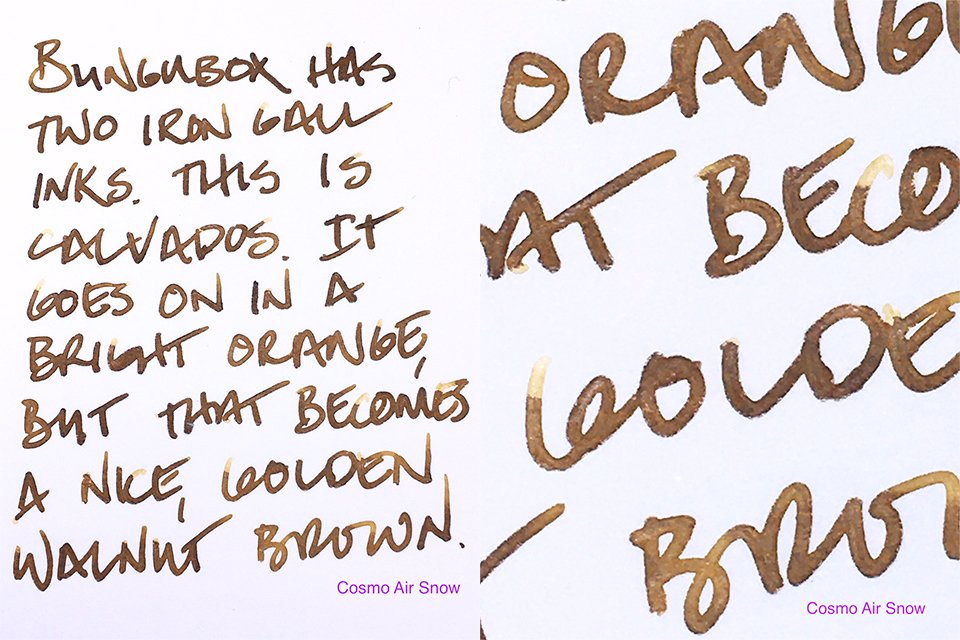 BUNGUBOX HAS
TWO IRON GALL
INKS. THIS IS
CALVADOS. IT
GOES ON IN A
BRIGHT ORANGE,
BUT THAT BECOMES
A NICE, GOLDEN
WALNUT BROWN.
Cosmo Air Snow
ORANG
AT BECO
GOLDE
BRO
Cosmo Air Snow